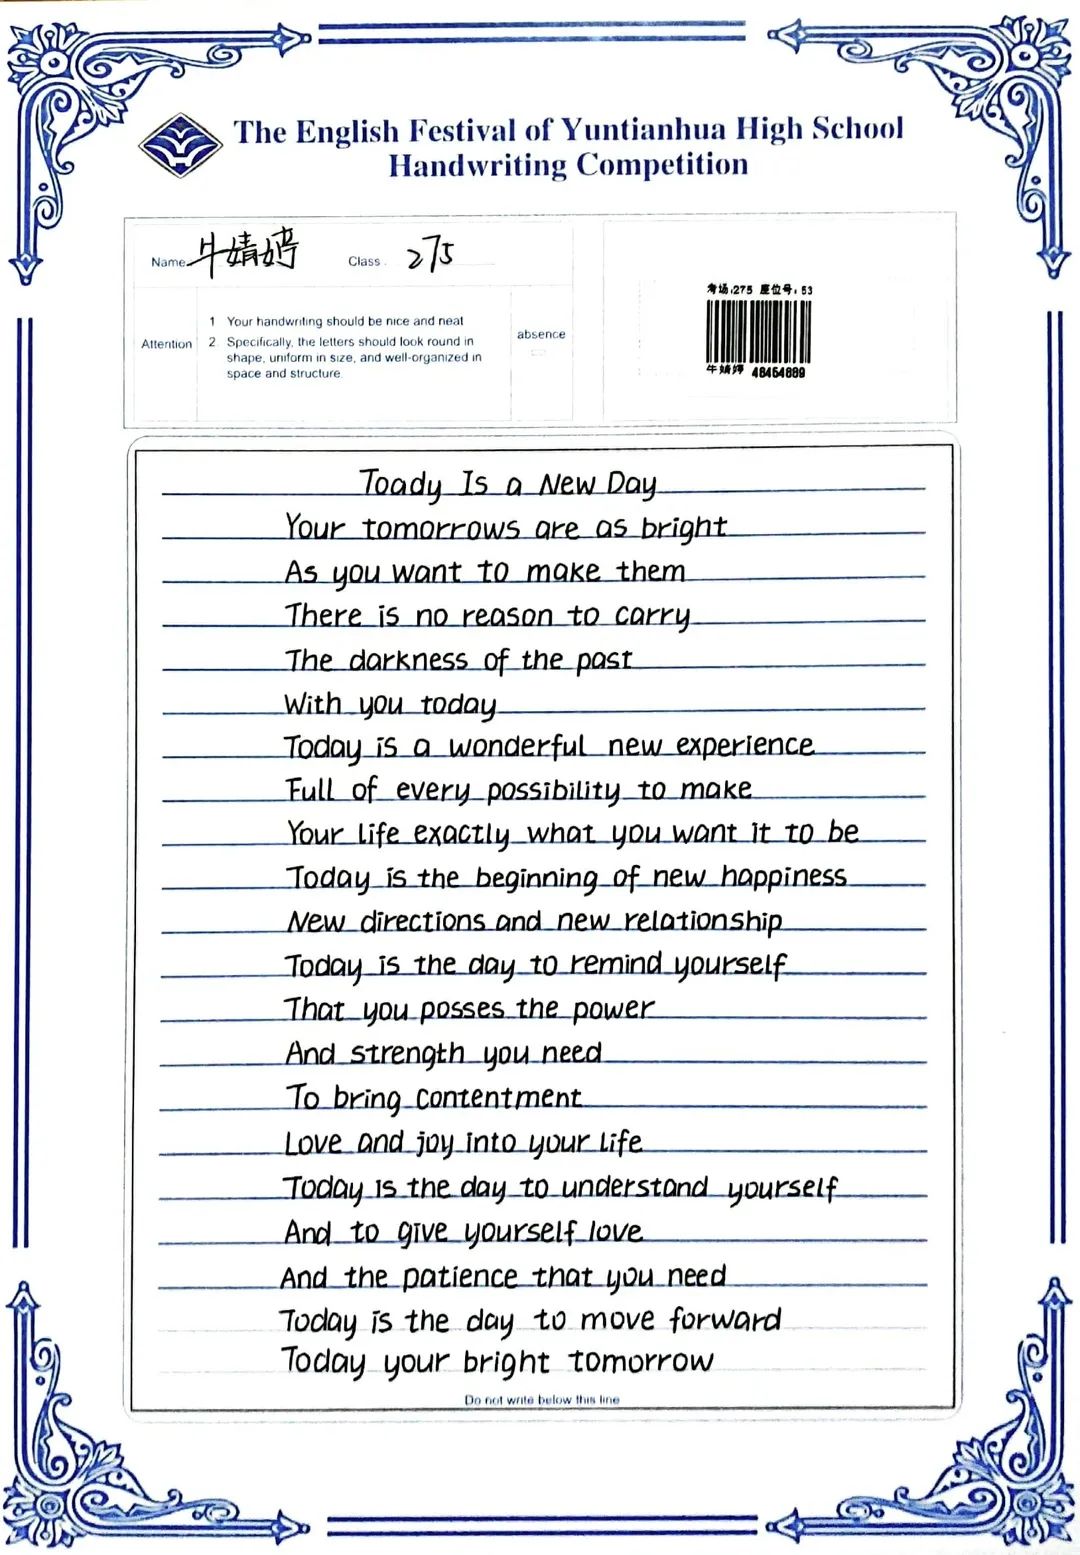 The English Festival of Yuntianhua High School
Handwriting Competition
Name 牛婧婷 Class 275
考场:275 座位号:53
Attention
1 Your handwriting should be nice and neat
2. Specifically, the letters should look round in
shape, uniform in size, and well-organized in
space and structure.
absence
牛婧婷 48454889
Toady Is a New Day
Your tomorrows are as bright
As you want to make them
There is no reason to carry
The darkness of the past
With you today
Today is a wonderful new experience
Full of every possibility to make
Your life exactly what you want it to be
Today is the beginning of new happiness
New directions and new relationship
Today is the day to remind yourself
That you posses the power
And strength you need
To bring contentment
Love and joy into your life
Today is the day to understand yourself
And to give yourself love
And the patience that you need
Today is the day to move forward
Today your bright tomorrow
Do not write below this line